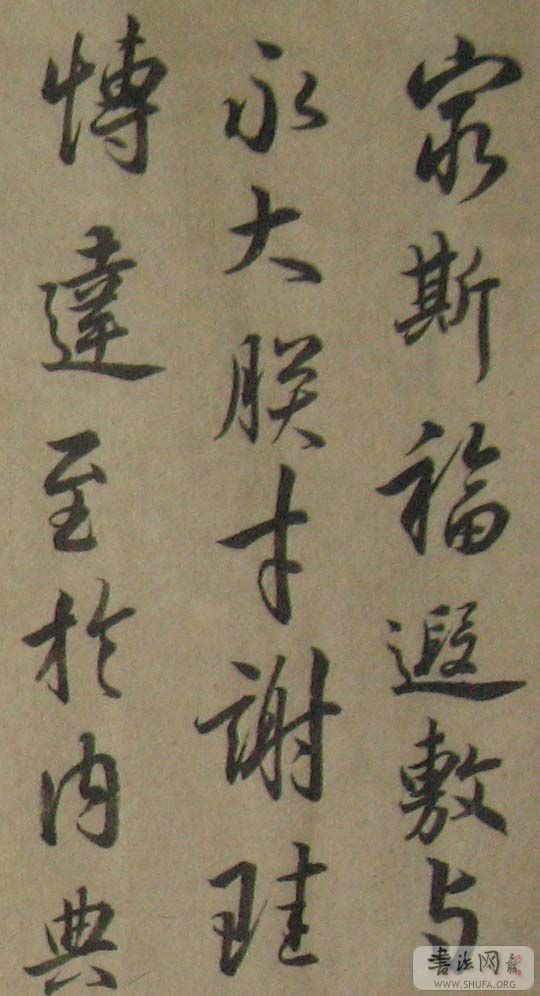 斯福遐敷与
永大朕才謝珪
博達至於内典
書法网
WWW.SHUFA.ORG